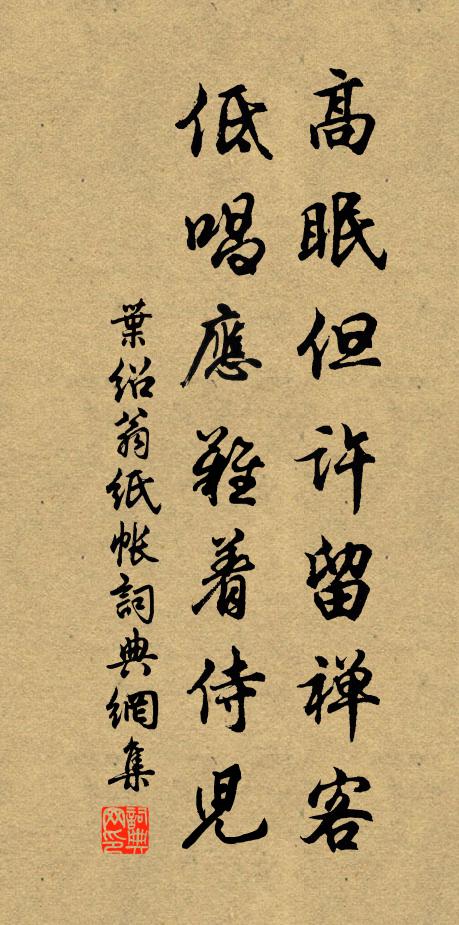 高眠但许留禅客
低唱應難着侍児
葉紹翁紙帳詞典網集
詞典网印